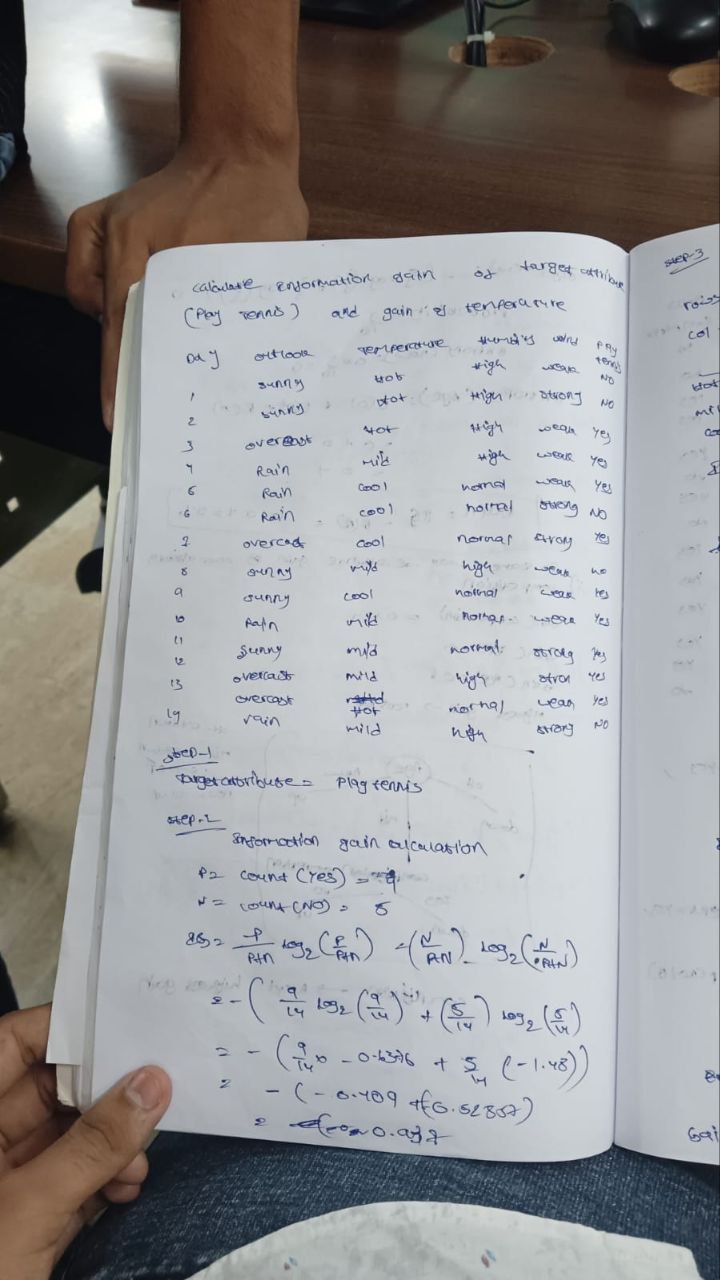 calculate information gain of target attribute
(Play Tennis) and gain of temperature
Day outlook Temperature Humidity wind Play tennis
1 sunny Hot High weak NO
2 sunny Hot High strong NO
3 overcast Hot High weak Yes
4 Rain Mild High weak Yes
5 Rain cool normal weak Yes
6 Rain cool normal strong NO
7 overcast cool normal strong Yes
8 sunny mild high weak no
9 sunny cool normal weak Yes
10 Rain mild normal weak Yes
11 sunny mild normal strong Yes
12 overcast mild high stron Yes
13 overcast Hot normal weak Yes
14 rain mild high strong NO
Step-1
Target attribute = Play tennis
Step-2
Information gain calculation
P = count (Yes) = 9
N = count (NO) = 5
= P/P+n log2 (P/P+n) - (N/P+N) log2 (N/P+N)
= - ( 9/14 log2 (9/14) + (5/14) log2 (5/14)
= - (9/14 x - 0.6376 + 5/14 (-1.48))
= - (-0.409 + (0.52857)
= 0.937
Step-3